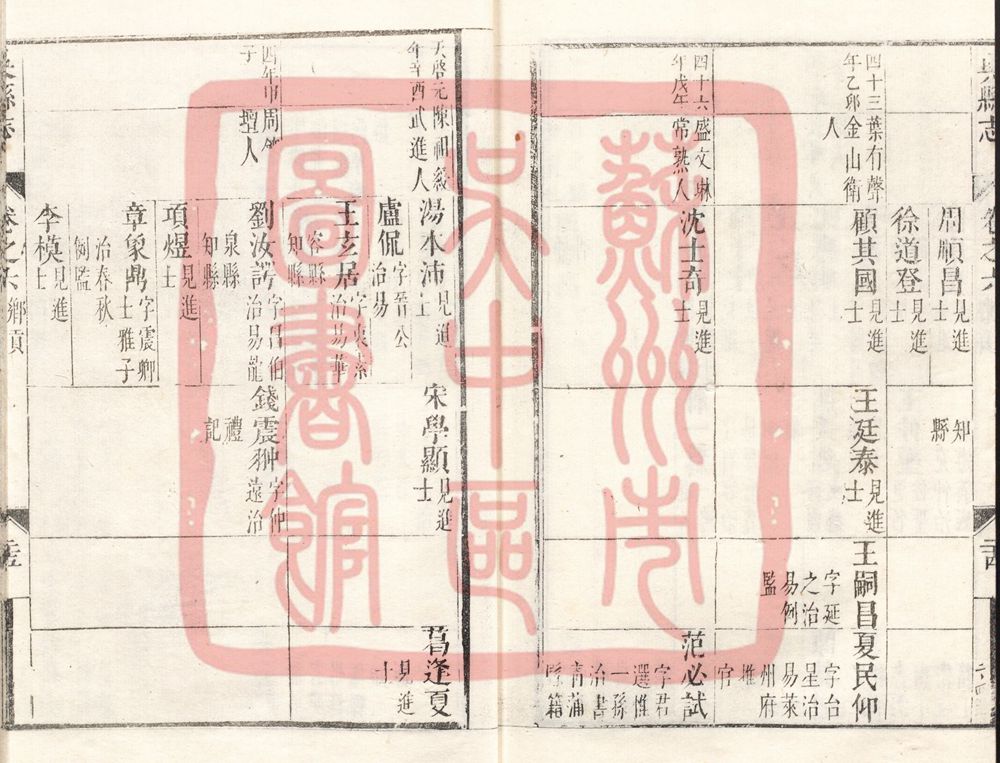 吳縣志
卷之六
周順昌見進士
知縣
徐道登見進士
四十三年乙卯
葉有聲金山衛人
顧其國見進士
王廷泰見進士
王嗣昌字延之治易例監
夏民仰字台星治易萊州府推官
四十六年戊午
盛文琳常熟人
沈士奇見進士
范必試字君選惟一孫治書青蒲縣籍
天啓元年辛酉
陳組綬武進人
湯本沛見進士
宋學顯見進士
葛逢夏見進士
盧侃字晉公治易
王玄居字爽素治易華容縣知縣
四年甲子
周鑣金壇人
劉汝諤字昌伯治易龍泉縣知縣
錢震翀字仲遠治禮記
項煜見進士
章象鼎字震卿士雅子治春秋例監
李模見進士
吳縣志
卷之六
鄉貢